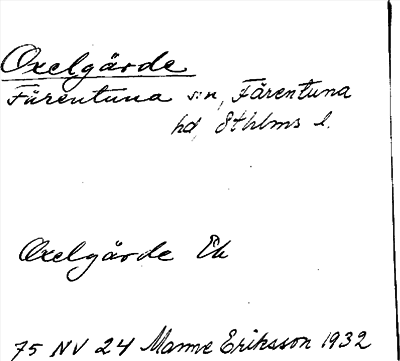 Oxelgärde
Färentuna s:n, Färentuna
hd, Sthlms l.
Oxelgärde Ek
75 NV 24 Manne Eriksson 1932